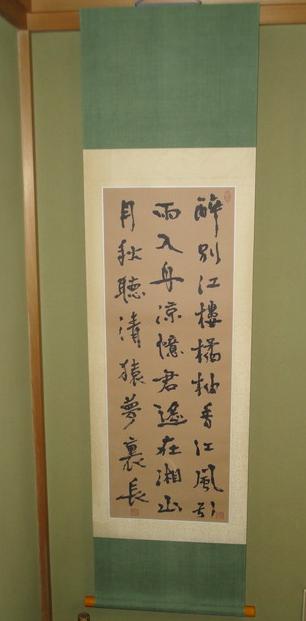 醉別江樓橘柚香江風引
雨入舟涼憶君遙在湘山
月秋聽清猿夢裏長